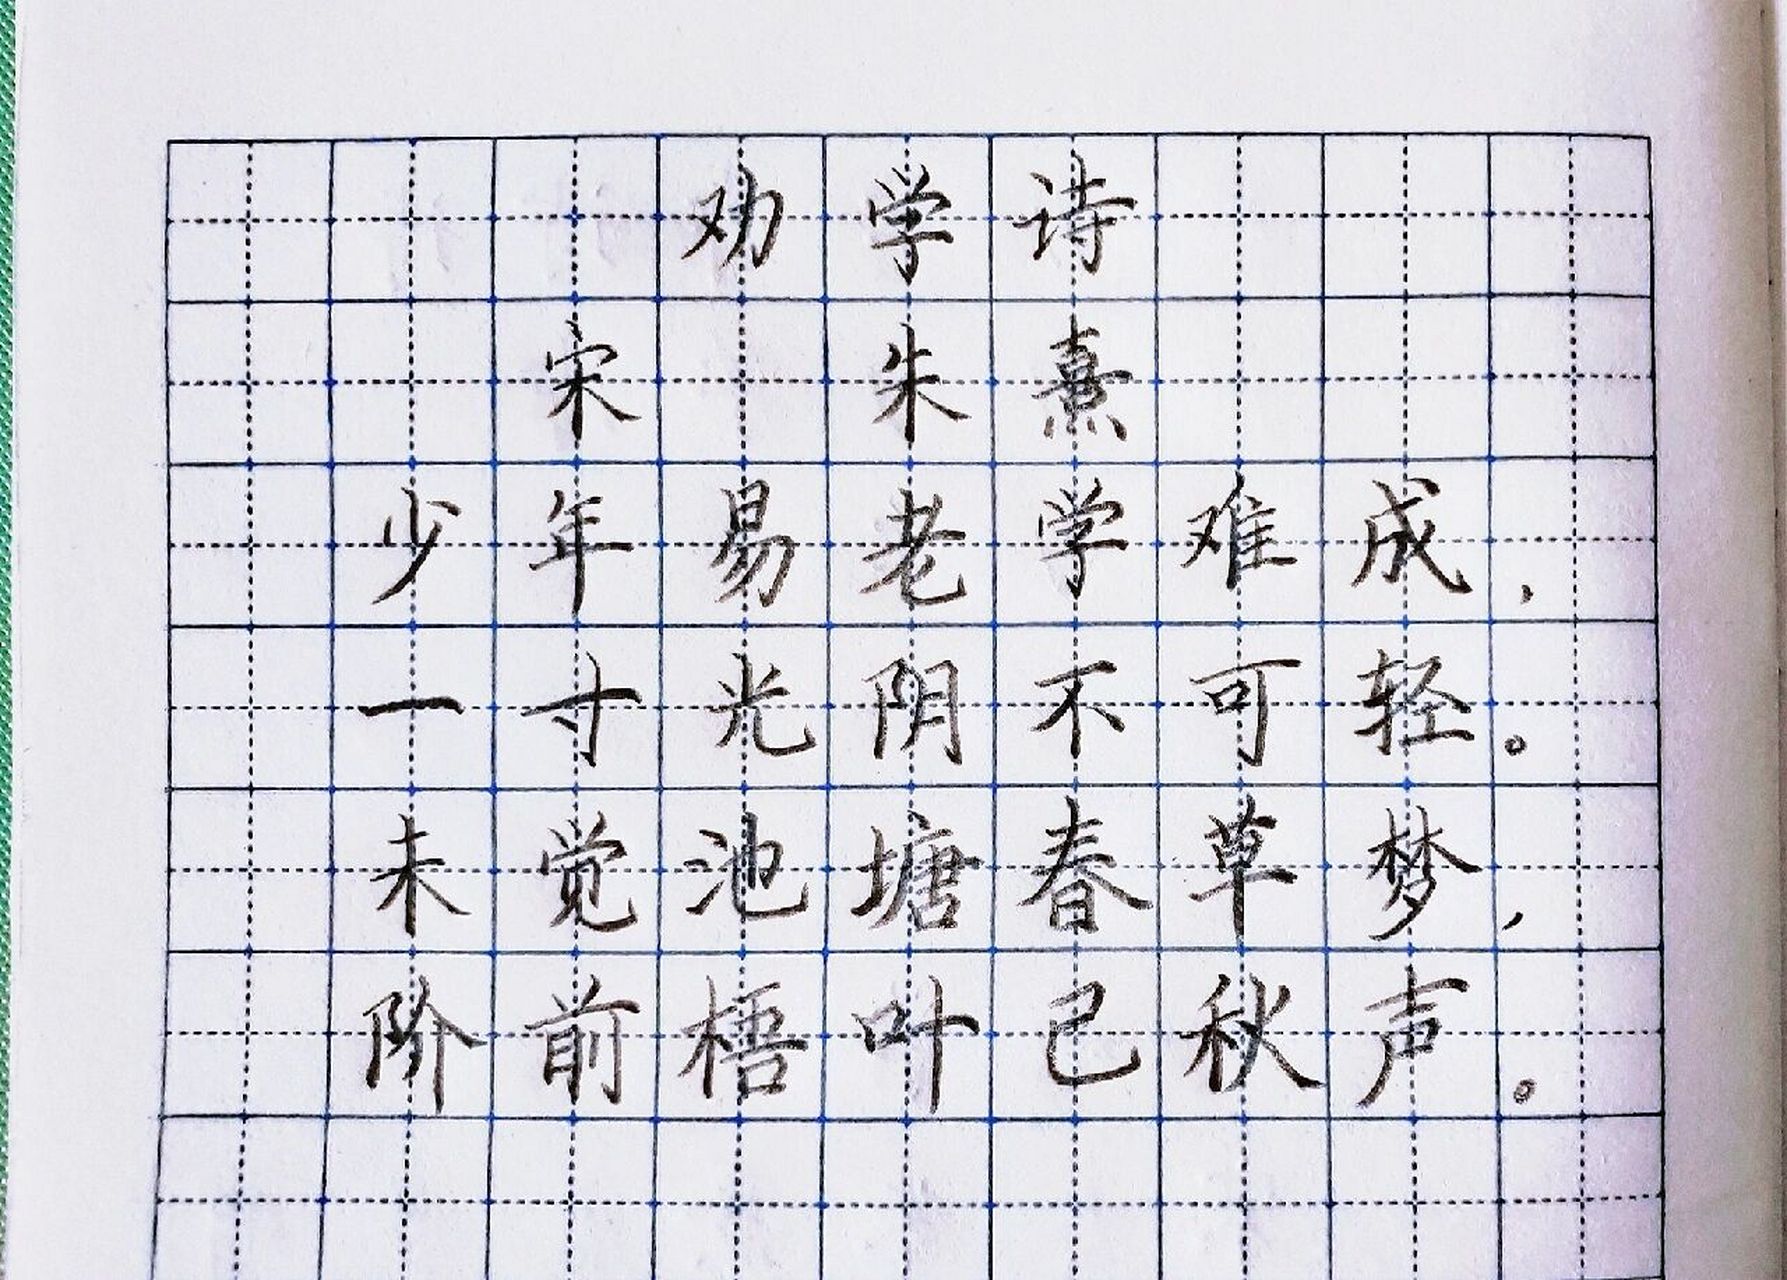 劝学诗
宋 朱熹
少年易老学难成,
一寸光阴不可轻。
未觉池塘春草梦,
阶前梧叶已秋声。